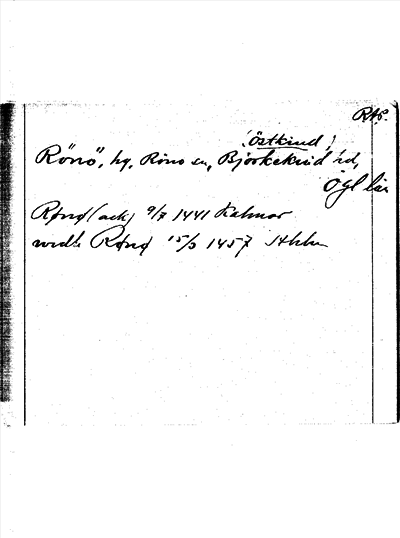 RAp.
(Östkind)
Rönö, hg. Rönö sn, Björkekind hd,
Ög l län
Rønø (ack) 9/7 1441 Kalmar
widh Rønø 15/3 1457 Sthlm